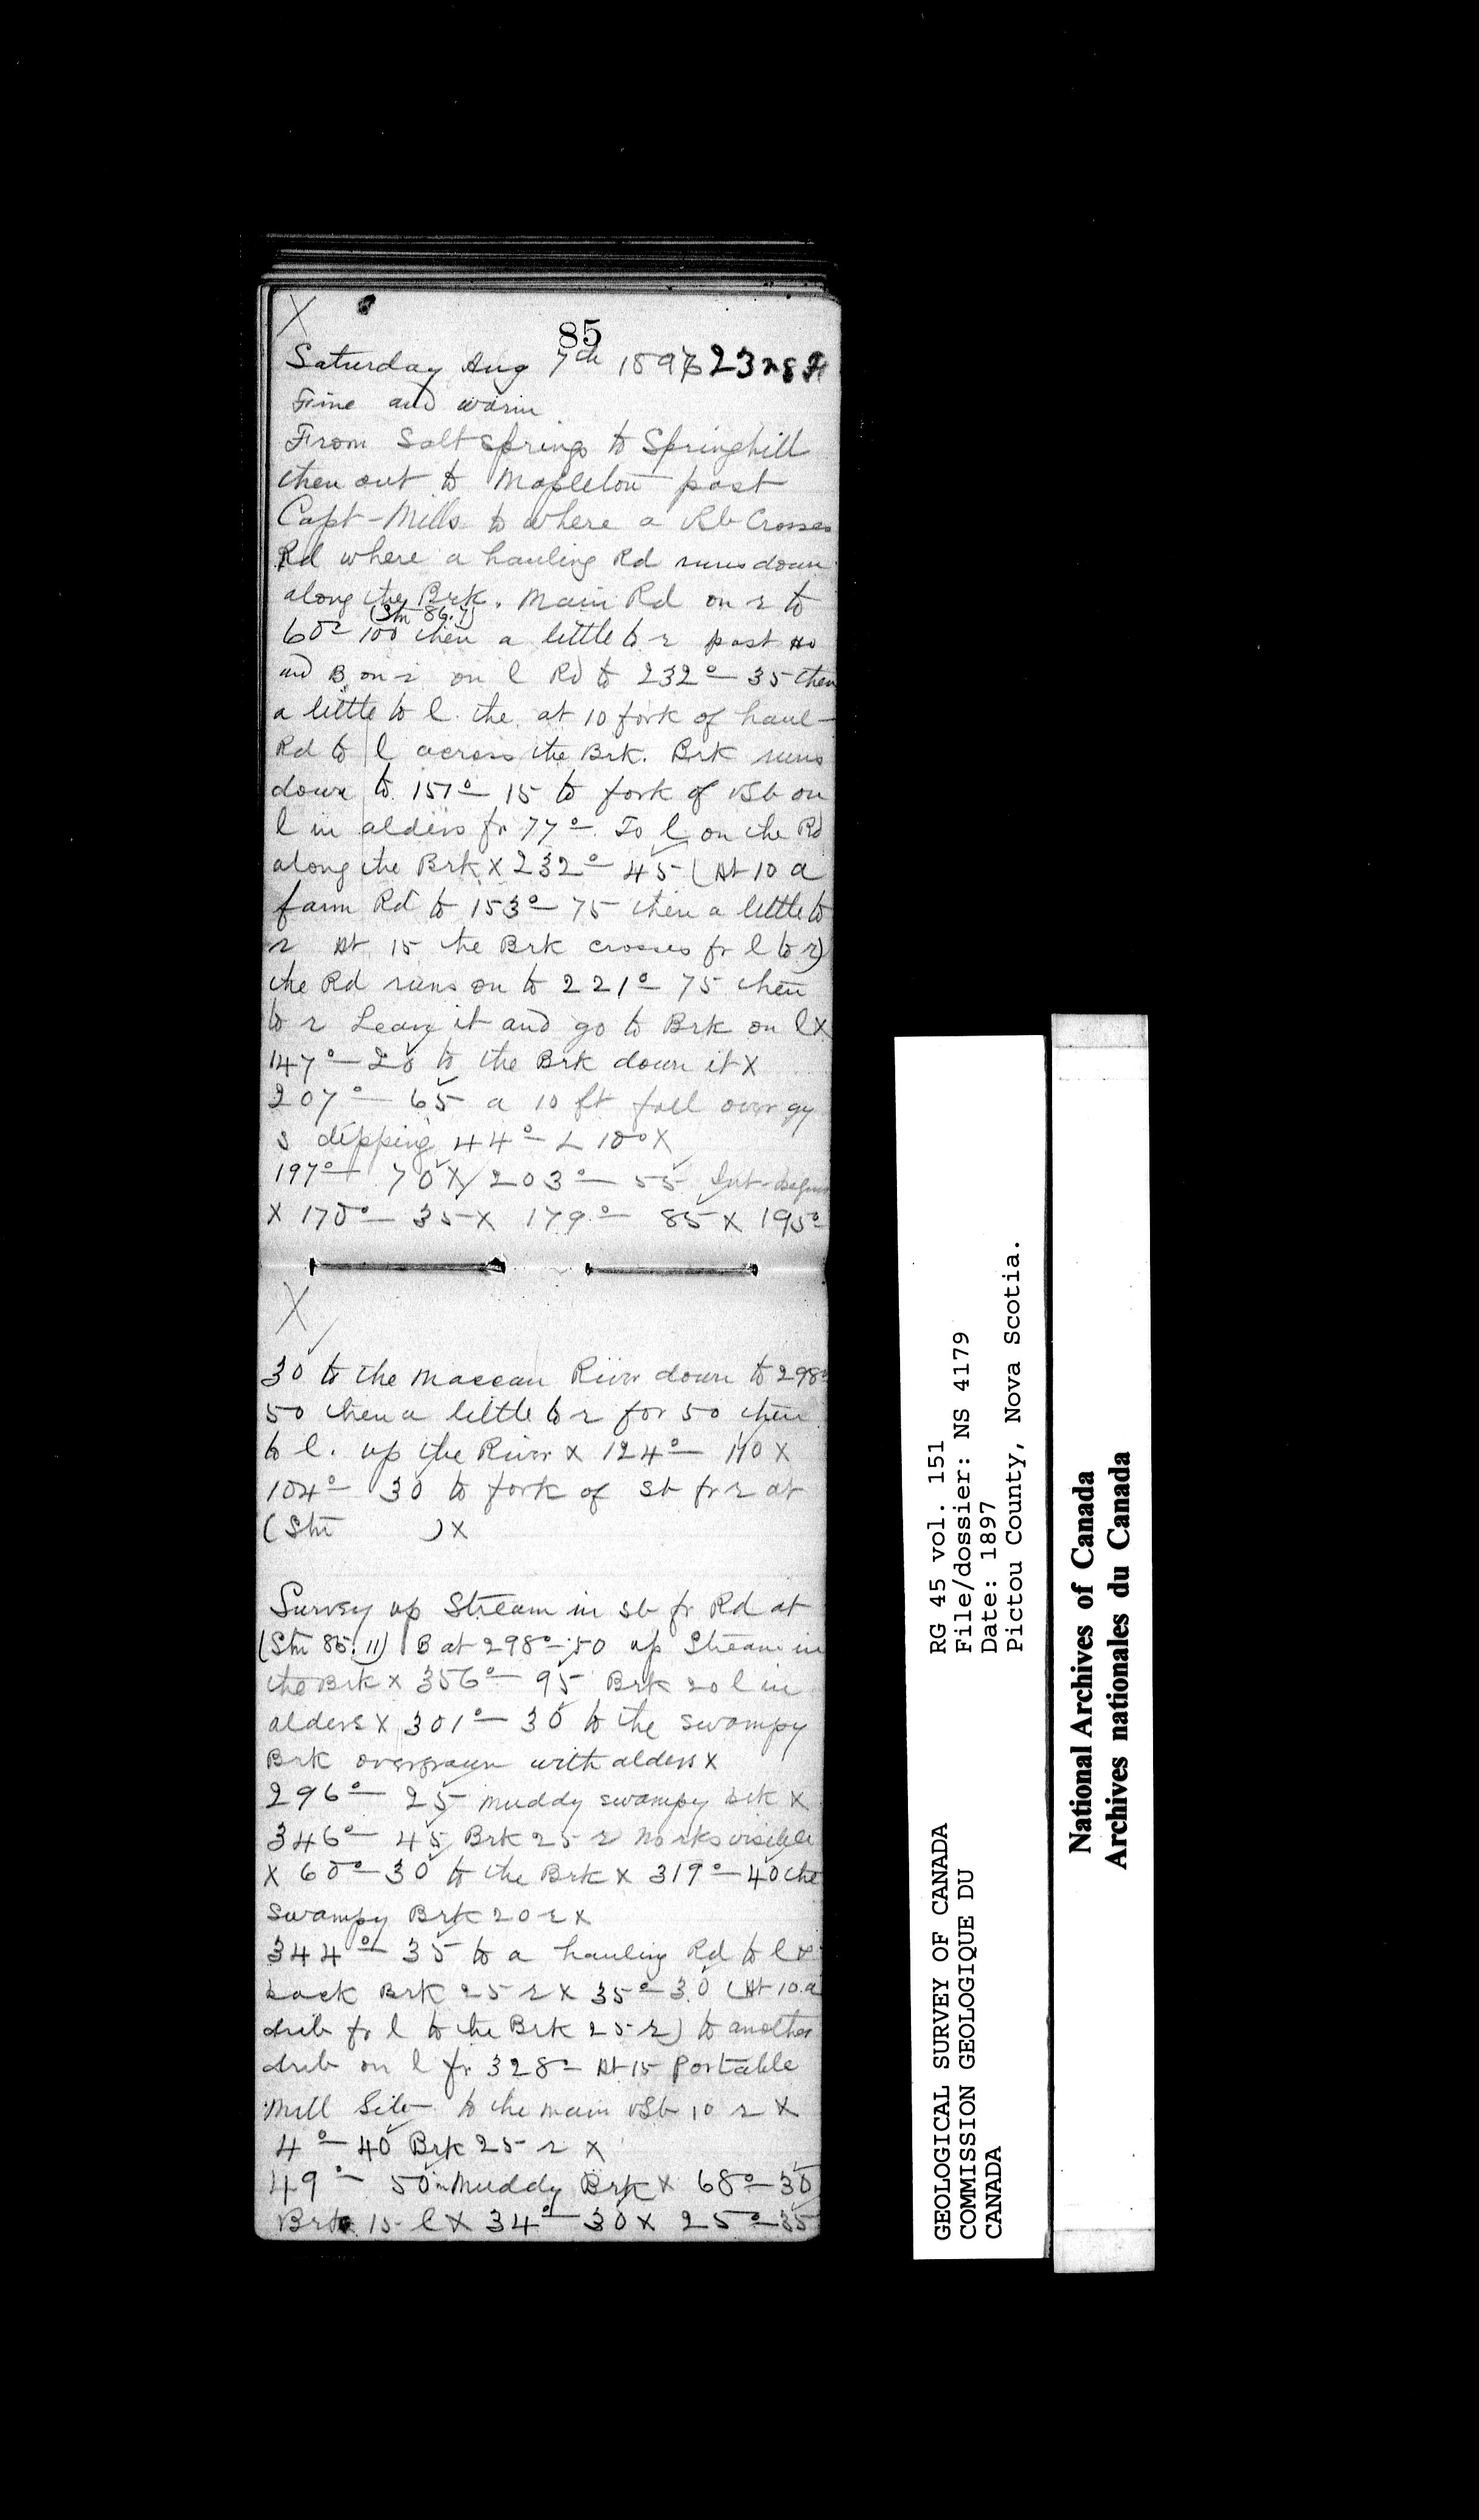 X
85
Saturday Aug 7th 1897
Fine and warm
From Salt springs to Springhill
then out to Mapleton past
Capt-Mills to where a vsb Crosses
Rd where a hauling Rd runs down
along the Brk. Main Rd on r to
(Stn 86.7)
60°- 100 then a little to r past Ho
and B on r on l Rd to 232°- 35 then
a little to l. the at 10 fork of haul-
Rd to l across the Brk. Brk runs
down to 157°- 15 to fork of vSb on
l in alders fr 77°. To l on the Rd
along the Brk X 232°- 45 (At 10 a
farm Rd to 153°- 75 then a little to
r At 15 the Brk crosses fr l to r)
the Rd runs on to 221°- 75 then
to r Leave it and go to Brk on l X
147°- 20 to the Brk down it X
207°- 65 a 10 ft fall over gy
s dipping 44°- L 10° X
197°- 70 X 203°- 55
X 170°- 35 X 179°- 85 X 195°
X
30 to the Maccan River down to 298°
50 then a little to r for 50 then
to l. up the River X 124°- 110 X
104°- 30 to fork of sb fr r at
(Stn ) X
Survey up Stream in sb fr Rd at
(Stn 85.11) B at 298°- 50 up Stream in
the Brk X 356°- 95 Brk 20 l in
alders X 301°- 30 to the swampy
Brk overgrown with alders X
296°- 25 muddy swampy brk X
346°- 45 Brk 25 r No rks visible
X 60°- 30 to the Brk X 319°- 40 the
swampy Brk 20 r X
344°- 35 to a hauling Rd to l &
back Brk 25 r X 35°- 30 (At 10 a
drib fr l to the Brk 25 r) to another
drib on l fr 328°- At 15 Portable
Mill Site to the main vSb 10 r X
4°- 40 Brk 25 r X
49°- 50 in Muddy Brk X 68°- 30
Brk 15 l X 34°- 30 X 25°- 35
GEOLOGICAL SURVEY OF CANADA
COMMISSION GEOLOGIQUE DU
CANADA
RG 45 vol. 151
File/dossier: NS 4179
Date: 1897
Pictou County, Nova Scotia.
National Archives of Canada
Archives nationales du Canada